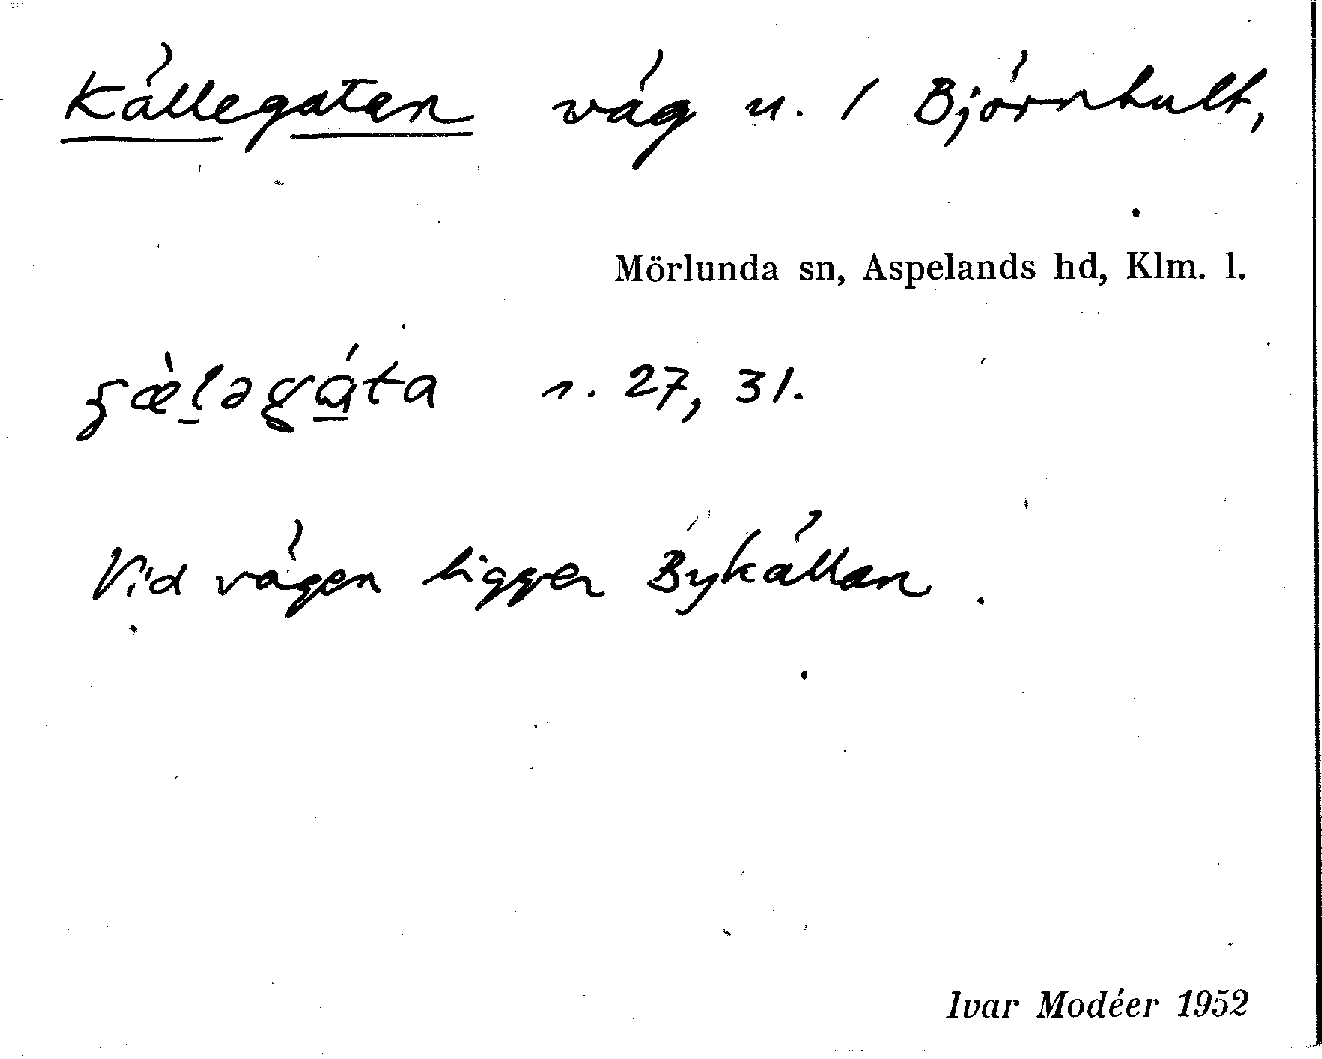 Källegatan väg u. / Björnhult,
Mörlunda sn, Aspelands hd, Klm. l.
n. 27, 31.
Vid vägen ligger Bykällan.
Ivar Modéer 1952